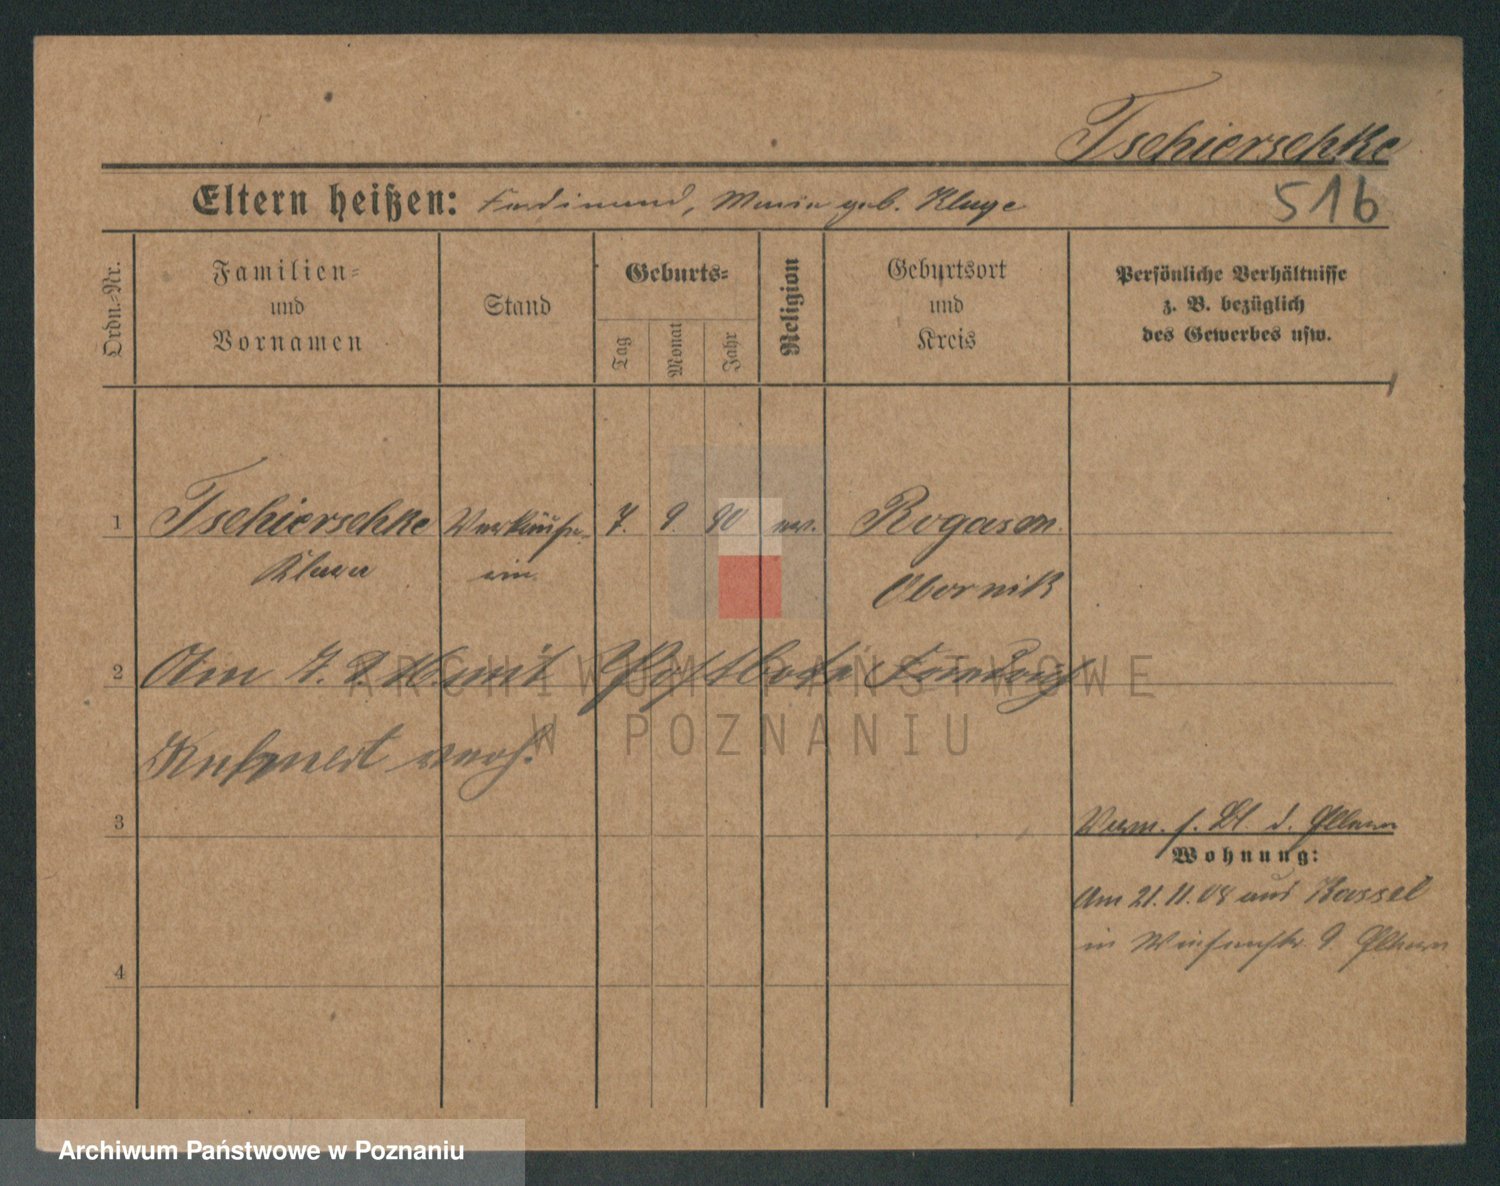 Tschierschke
516
Eltern heißen: Ferdinand, Maria geb. Kluge
Ordn.-Nr.
Familien-
und
Vornamen
Stand
Geburts-
Tag
Monat
Jahr
Religion
Geburtsort
und
Kreis
Persönliche Verhältnisse
z. B. bezüglich
des Gewerbes usw.
1 Tschierschke Verkäufer- 7. 9. 90 ev. Rogasen
Klara in Obornik
2 Am 7. mit Postbote
verh.
3
d. Eltern
Wohnung:
Am 21.11.08 aus Kassel
in 9. Eltern
4
ARCHIWUM PAŃSTWOWE
W POZNANIU
Archiwum Państwowe w Poznaniu